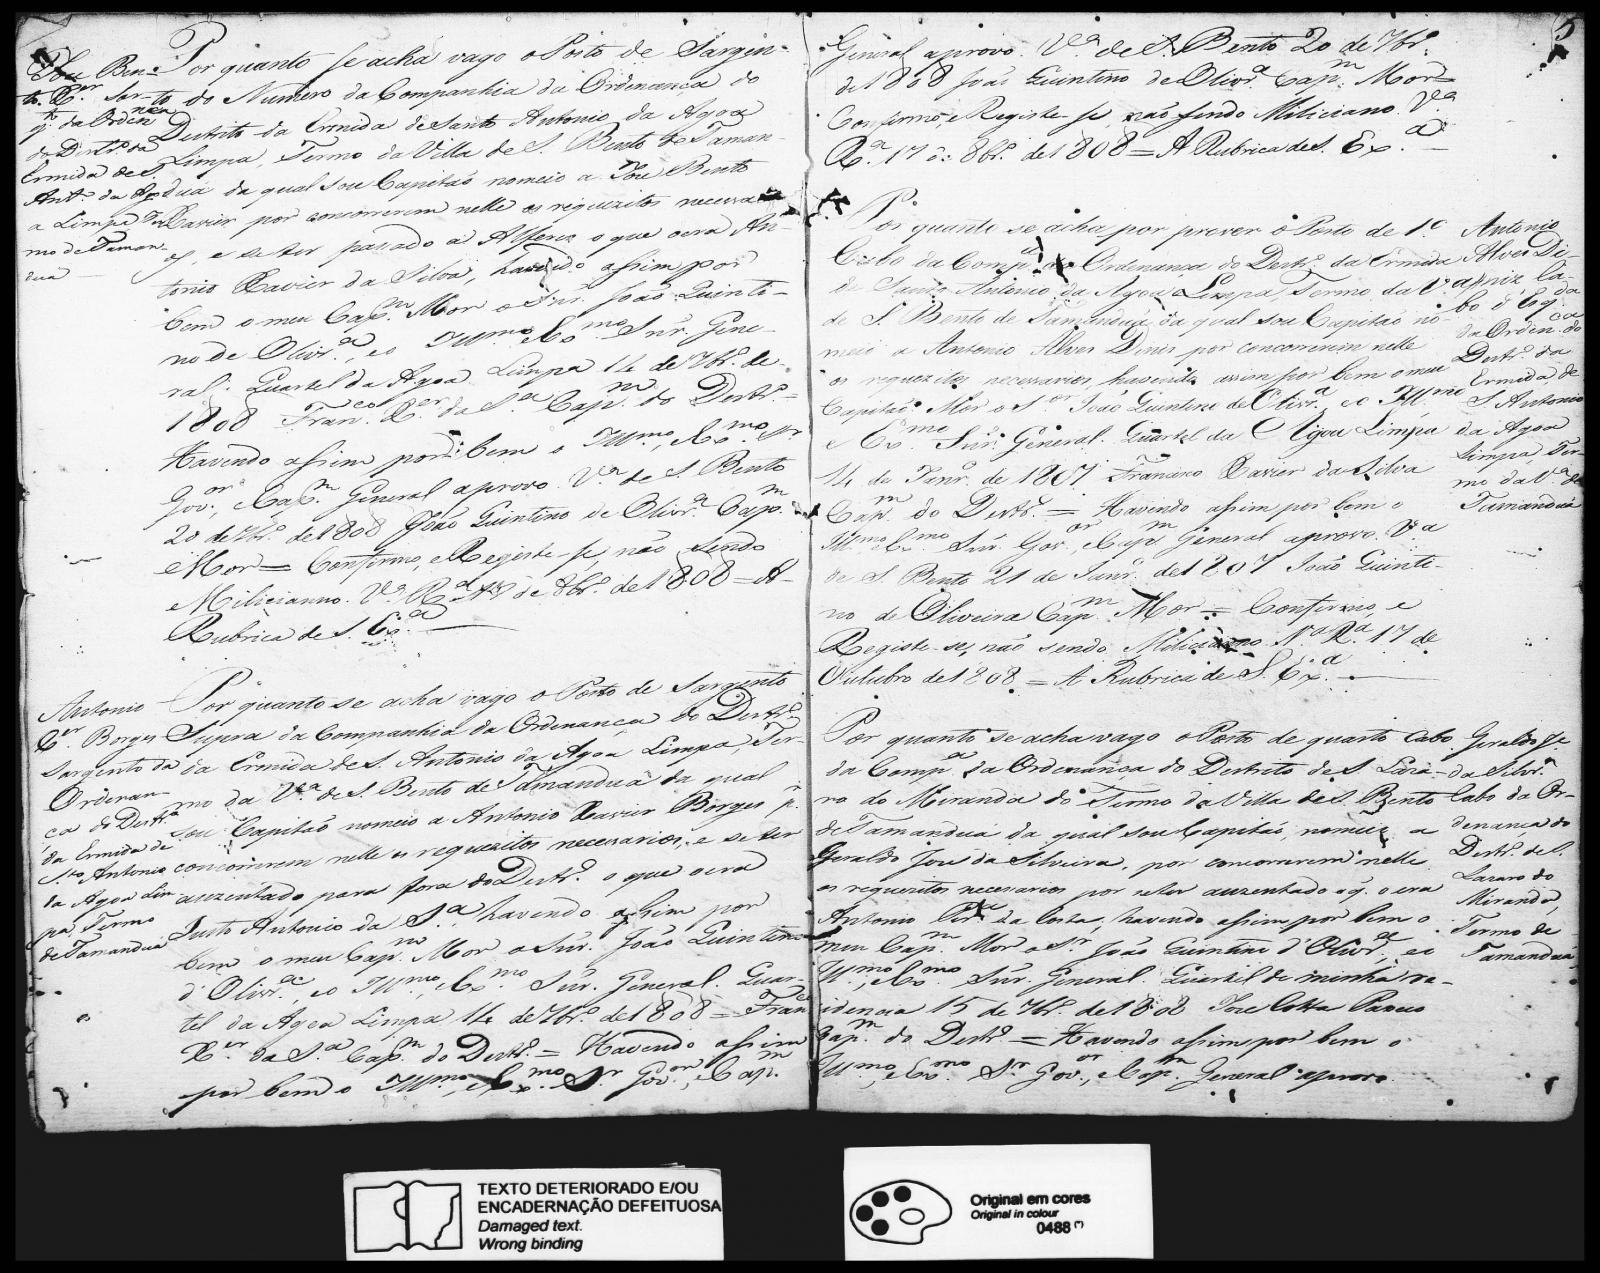 Joze Ben-
to X.er Sar-
g.to da Orden.nça
do Destr.o da
Ermida de S.
Ant.o da Ago-
a Limpa Ter-
mo de Taman-
dua
Por quanto se acha vago o Posto de Sargin-
to do Numero da Companhia da Ordenança do
Destrito da Ermida de Santo Antonio da Agoa
Limpa, Termo da Villa de S. Bento de Taman-
duá da qual sou Capitão nomeio a Joze Bento
Xavier por concorrerem nelle os requezitos necessa-
os, e se ter pasado a Alferes o que oera An-
tonio Xavier da Silva, havendo assim por
bem o meu Cap.m Mor o Snr. João Quinti-
no de Olivr.a, e o Ill.mo Ex.mo Snr. Gene-
ral. Quartel da Agoa Limpa 14 de 7br.o de
1808 Fran.co X.er da S.a Cap.m do Destr.o =
Havendo assim por bem o Ill.mo, e Ex.mo Sr.
Gov.or, e Cap.m General aprovo. V.a de S. Bento
20 de 7br.o de 1808 João Quintino de Olivr.a Cap.m
Mor = Confirmo, e Registe-se, não sendo
Miliciano. V.a R.a 17 de 8br.o de 1808 = A
Rubrica de S. Ex.a
Antonio
X.er Borges
Sargento da
Ordenan-
ça do Destr.o
da Ermida de
S.to Antonio
da Agoa Lim
pa, Termo
de Tamanduá
Por quanto se acha vago o Posto de Sargento
Supera da Companhia da Ordenança do Destr.o
da Ermida de S. Antonio da Agoa Limpa, Ter-
mo da V.a de S. Bento de Tamanduá da qual
sou Capitão nomeio a Antonio Xavier Borges p.r
concorrerem nelle os requezitos necessarios, e se ter
auzentado para fora do Destr.o o que oera
Justo Antonio da S.a, havendo assim por
bem o meu Cap.m Mor o Snr. João Quintino
d'Olivr.a, e o Ill.mo, e Ex.mo Snr. General. Quar-
tel da Agoa Limpa 14 de 7br.o de 1808 = Fran.co
X.er da S.a Cap.m do Destr.o = Havendo assim
por bem o Ill.mo, e Ex.mo Sr. Gov.or, e Cap.m
5
General aprovo. V.a de S. Bento 20 de 7br.o
de 1808 João Quintino de Olivr.a Cap.m Mor =
Confirmo, e Registe-se, não sendo Miliciano. V.a
R.a 17 de 8br.o de 1808 = A Rubrica de S. Ex.a
Por quanto se acha por prover o Posto de 1.o
Cabo da Comp.a Ordenança do Destr.o da Ermida
de Santo Antonio da Agoa Limpa, Termo da V.a
de S. Bento de Tamanduá da qual sou Capitão no-
meio a Antonio Alves Deniz por concorrerem nelle
os requezitos necessarios, havendo assim por bem o meu
Capitão Mor o S.or João Quintino de Olivr.a, e o Ill.mo
e Ex.mo Snr. General. Quartel da Agoa Limpa
14 de Janr.o de 1807 Francisco Xavier da Silva
Cap.m do Destr.o = Havendo assim por bem o
Ill.mo Ex.mo Snr. Gov.or, e Cap.m General aprovo. V.a
de S. Bento 21 de Janr.o de 1807 João Quinti-
no de Oliveira Cap.m Mor = Confirmo, e
Registe-se, não sendo Miliciano. V.a R.a 17 de
Outubro de 1808 = A Rubrica de S. Ex.a
Antonio
Alves Di-
niz Ca-
bo d'Esq.a
da Orden.ça do
Destr.o da
Ermida de
S. Antonio
da Agoa
Limpa, Ter-
mo da V.a de
Tamanduá
Por quanto se acha vago o Posto de quarto Cabo
da Comp.a da Ordenança do Destrito de S. Laza-
ro do Miranda do Termo da Villa de S. Bento
de Tamanduá da qual sou Capitão, nomeio a
Geraldo Joze da Silveira, por concorrerem nelle
os requezitos necessarios por seter auzentado o q. o era
Antonio da Costa, havendo assim por bem o
meu Cap.m Mor o Sr. João Quintino d'Olivr.a, e o
Ill.mo, e Ex.mo Snr. General. Quartel de minha re-
zidencia 15 de 7br.o de 1808 Joze Cotta Pacheco
Cap.m do Destr.o = Havendo assim por bem o
Ill.mo, e Ex.mo Sr. Gov.or, e Cap.m General aprovo.
Geraldo Je
da Silvr.a
Cabo da Or-
denança do
Destr.o de S.
Lazaro do
Miranda,
Termo de
Tamanduá
TEXTO DETERIORADO E/OU
ENCADERNAÇÃO DEFEITUOSA
Damaged text.
Wrong binding
Original em cores
Original in colour
0488 (*)